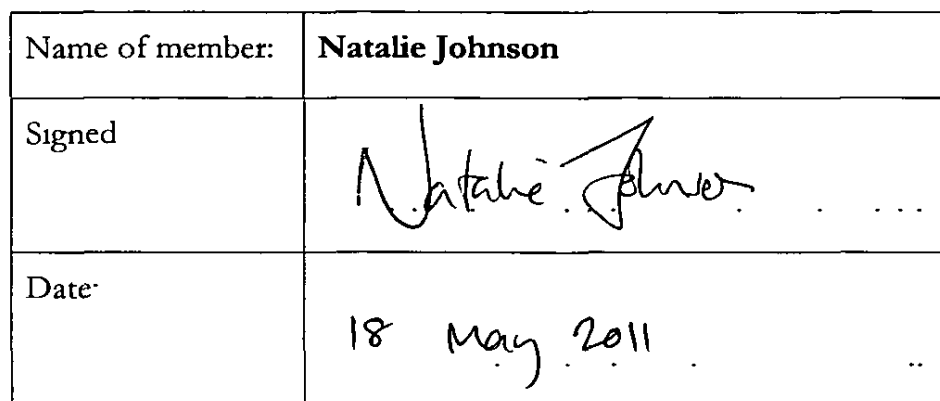 Name of member: Natalie Johnson
Signed Natalie Johnson
Date: 18 May 2011